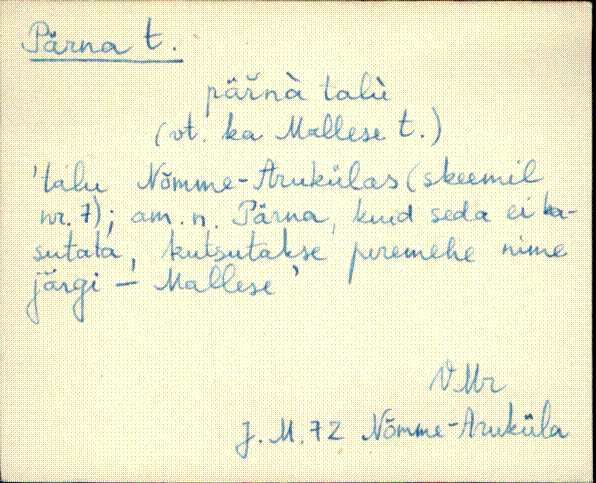 Pärna t.
päřnà talù
(vt. ka Mallese t.)
'talu Nõmme-Arukülas (skeemil
nr. 7); am. n. Pärna, kuid seda ei ka-
sutata, kutsutakse peremehe nime
järgi – Mallese'
VMr
J. M. 72 Nõmme-Aruküla